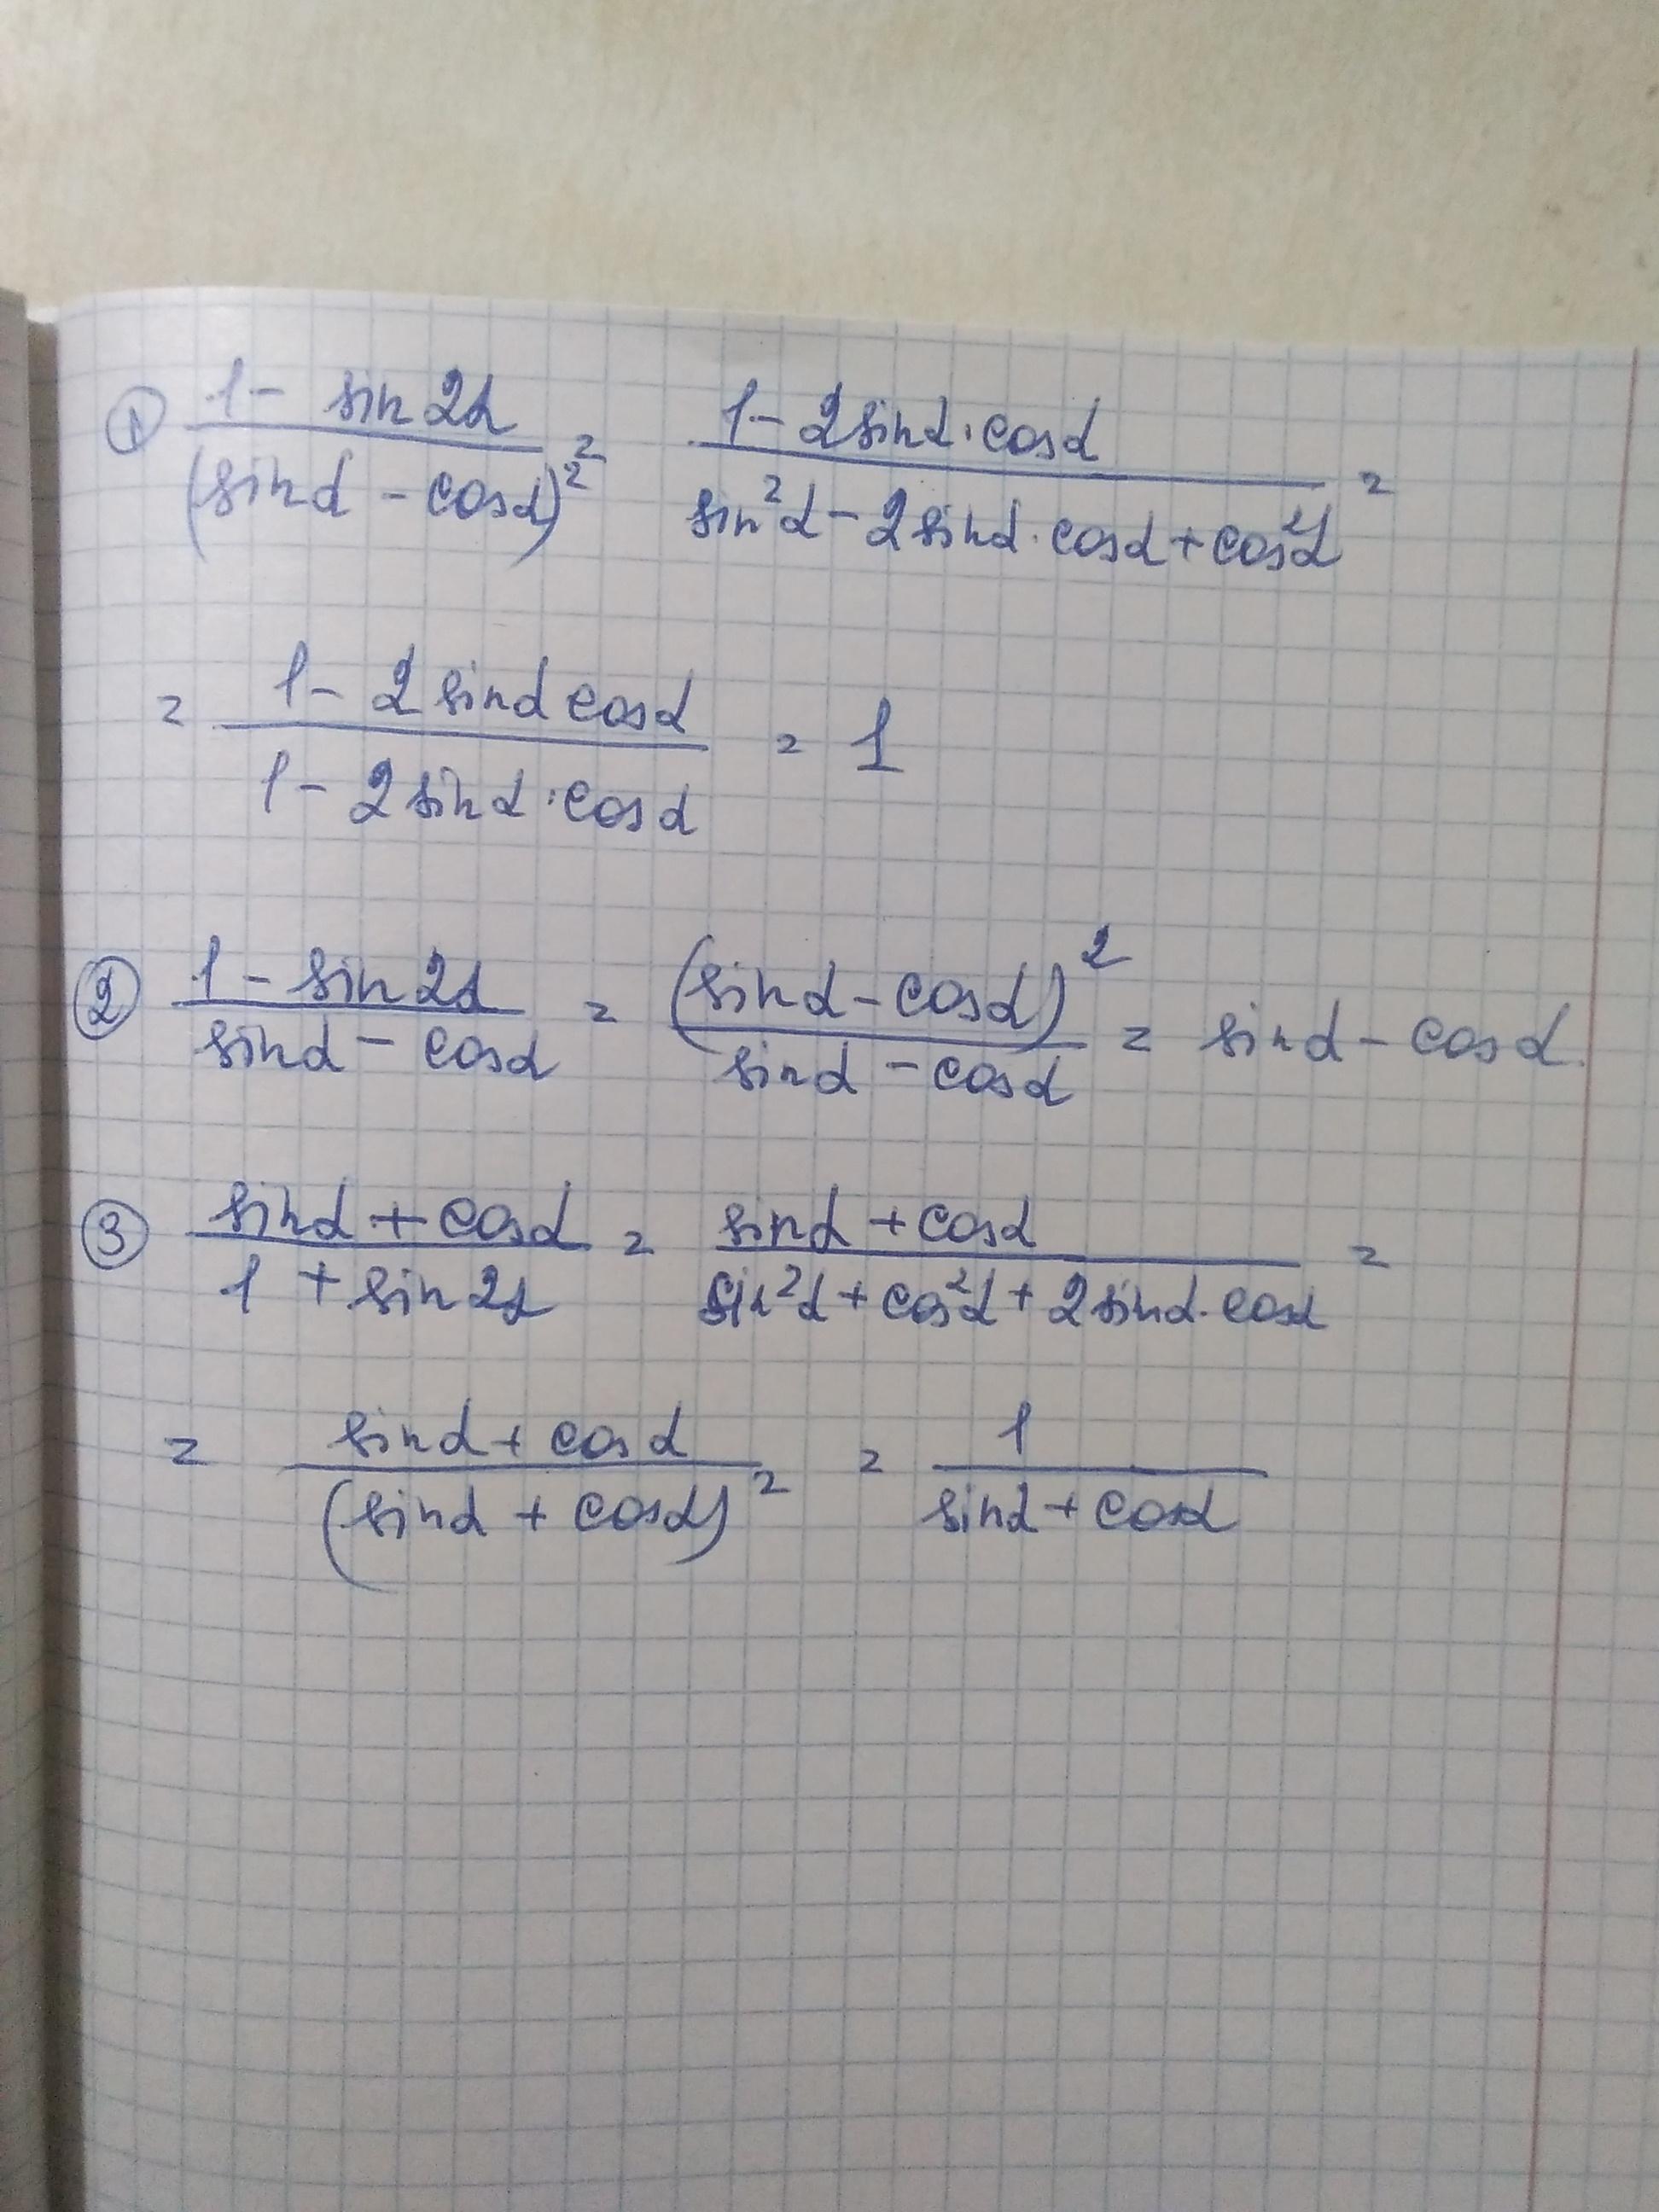 ① (1 - sin 2α)/(sin α - cos α)² = (1 - 2 sin α · cos α)/(sin² α - 2 sin α · cos α + cos² α) =
= (1 - 2 sin α cos α)/(1 - 2 sin α · cos α) = 1
② (1 - sin 2α)/(sin α - cos α) = (sin α - cos α)²/(sin α - cos α) = sin α - cos α.
③ (sin α + cos α)/(1 + sin 2α) = (sin α + cos α)/(sin² α + cos² α + 2 sin α · cos α) =
= (sin α + cos α)/(sin α + cos α)² = 1/(sin α + cos α)